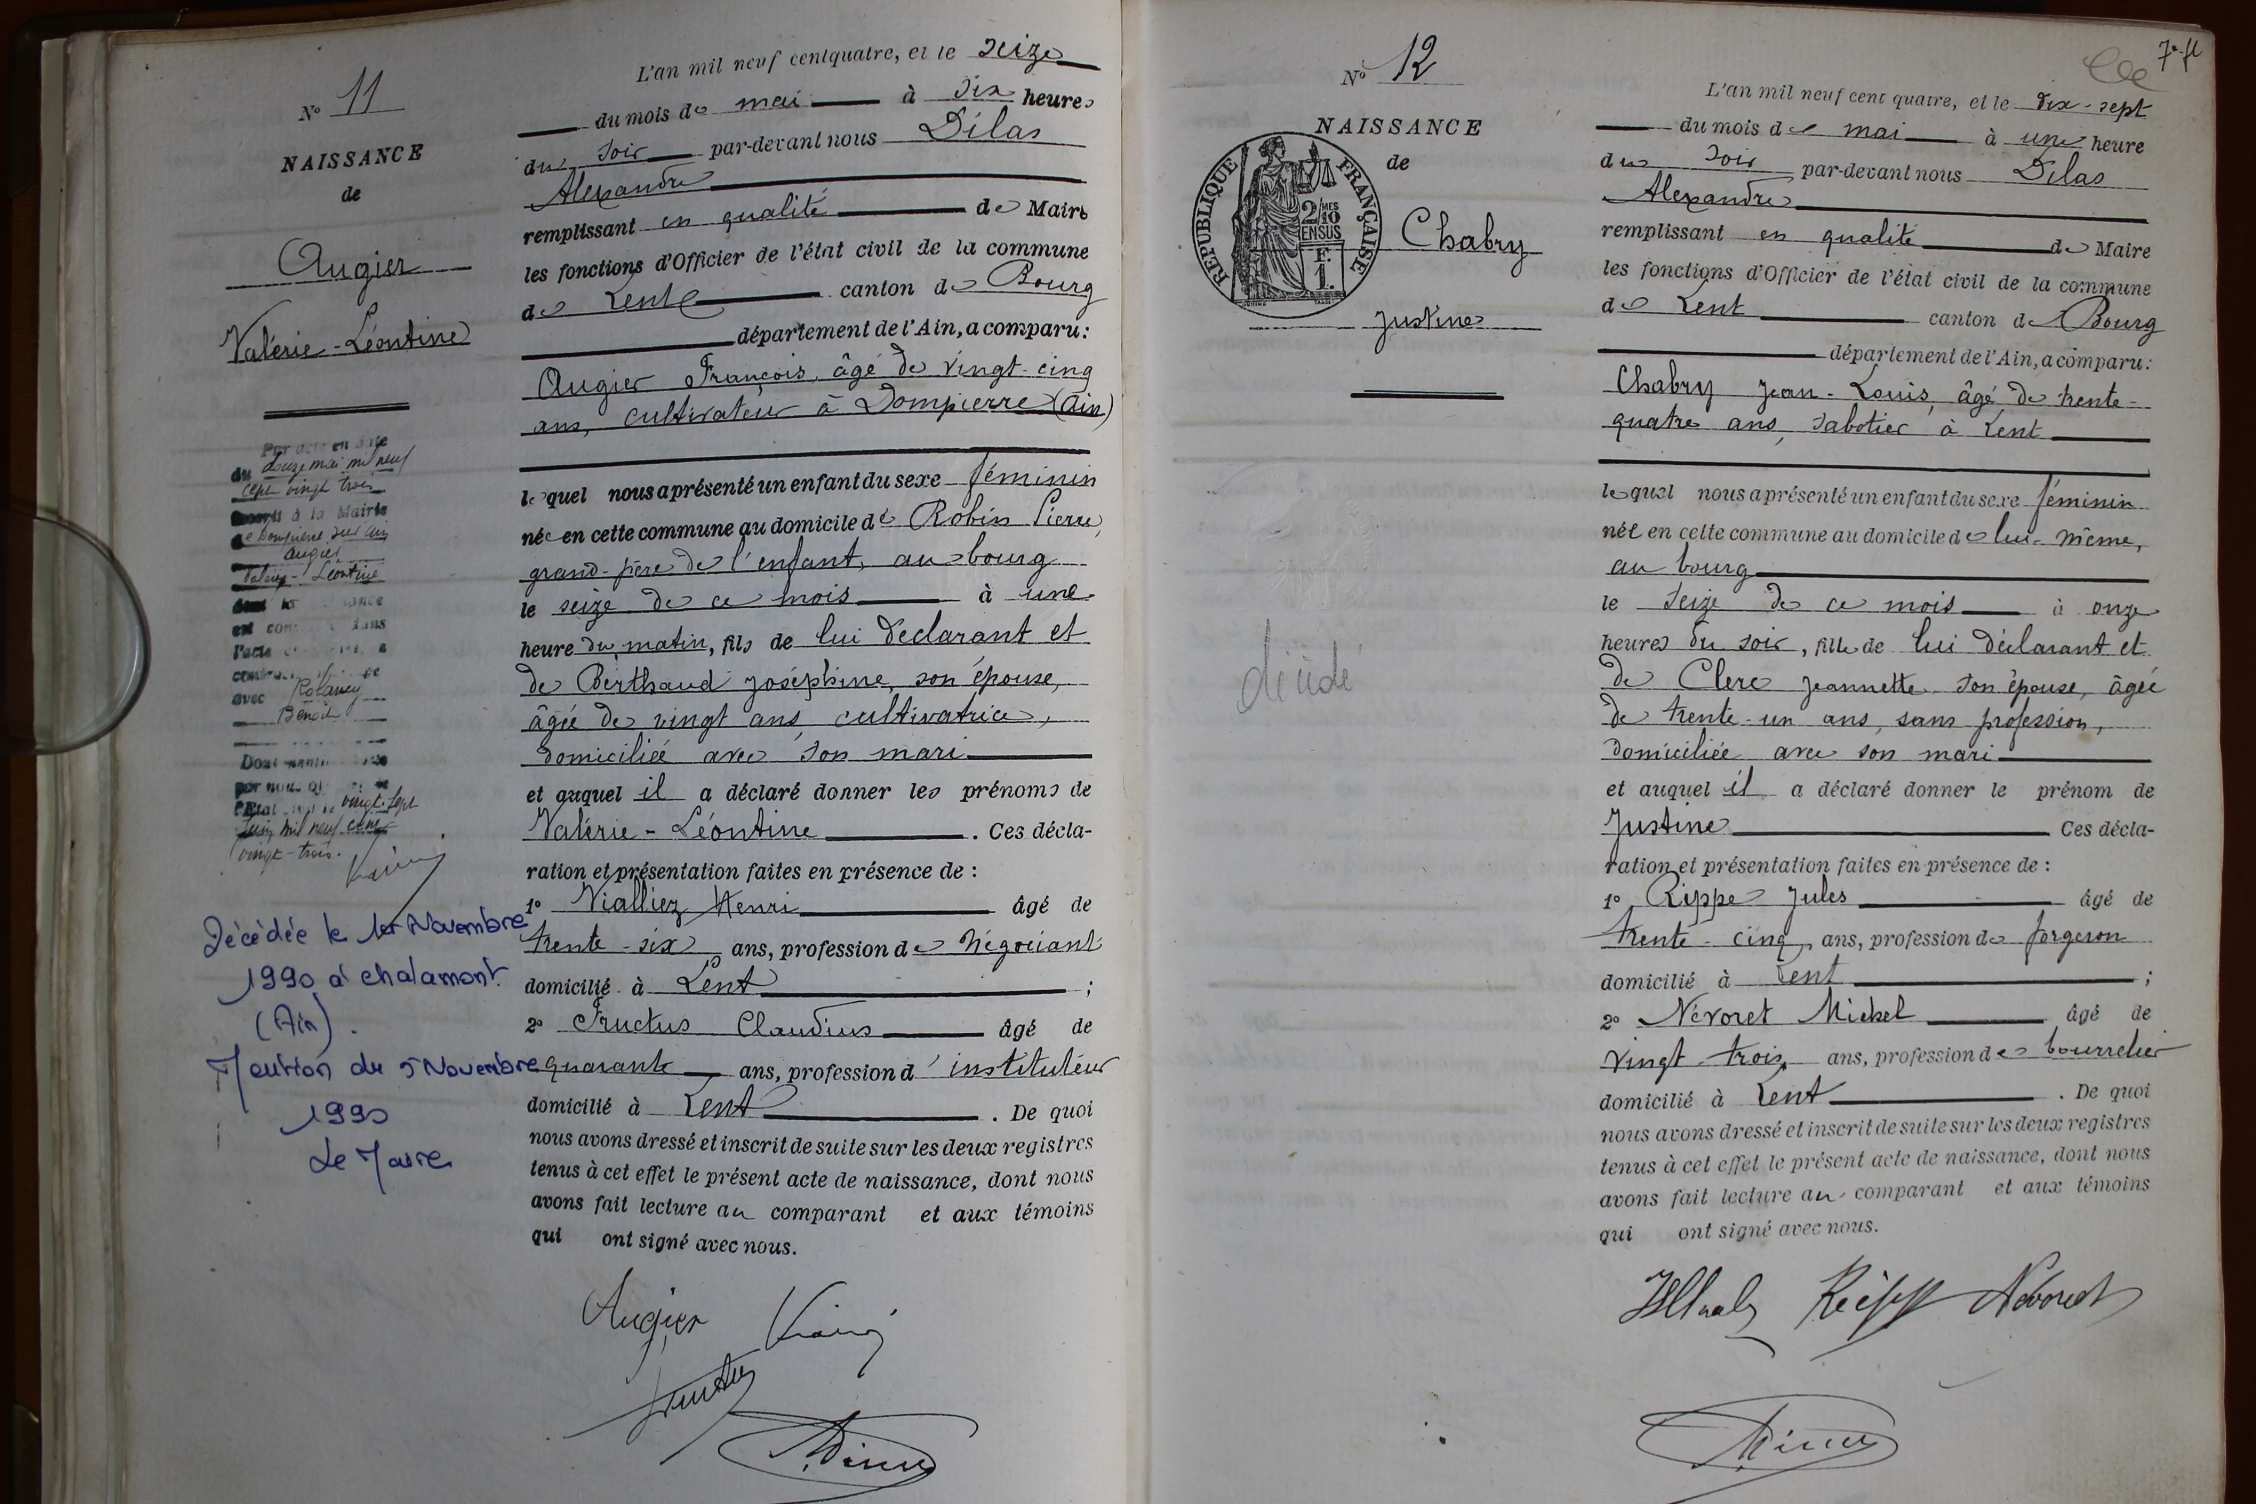 N° 11
NAISSANCE
de
Augier
Valérie-Léontine
Par acte en date
du douze mai mil neuf
cent vingt trois
à la Mairie
Dompierre sur Ain
Augier
Valérie-Léontine
est
l'acte
avec Rolancy
Benoit
par nous
vingt-sept
Juin mil neuf cent
vingt-trois.
Décédée le 1er Novembre
1990 à Chalamont
(Ain).
Mention du 5 Novembre
1990
Le Maire
L'an mil neuf cent quatre, et le seize
du mois de mai à dix heures
du soir par-devant nous Dilas
Alexandre
remplissant en qualité de Maire
les fonctions d'Officier de l'état civil de la commune
de Lent canton de Bourg
département de l'Ain, a comparu:
Augier François, âgé de vingt-cinq
ans, cultivateur à Dompierre (Ain)
lequel nous a présenté un enfant du sexe féminin
née en cette commune au domicile de Robin Pierre,
grand-père de l'enfant, au bourg
le seize de ce mois à une
heure du matin, fils de lui déclarant et
de Berthaud Joséphine, son épouse,
âgée de vingt ans, cultivatrice,
domiciliée avec son mari
et auquel il a déclaré donner les prénoms de
Valérie-Léontine. Ces décla-
ration et présentation faites en présence de :
1° Vialliez Henri âgé de
trente-six ans, profession de négociant
domicilié à Lent ;
2° Fructus Claudius âgé de
quarante ans, profession d'instituteur
domicilié à Lent. De quoi
nous avons dressé et inscrit de suite sur les deux registres
tenus à cet effet le présent acte de naissance, dont nous
avons fait lecture au comparant et aux témoins
qui ont signé avec nous.
Augier
Fructus
7e fl
N° 12
NAISSANCE
de
RÉPUBLIQUE FRANÇAISE
2/10MES
EN SUS
F.
1.
Chabry
Justine
décédé
L'an mil neuf cent quatre, et le dix-sept
du mois de mai à une heure
du soir par-devant nous Dilas
Alexandre
remplissant en qualité de Maire
les fonctions d'Officier de l'état civil de la commune
de Lent canton de Bourg
département de l'Ain, a comparu:
Chabry Jean-Louis, âgé de trente-
quatre ans, sabotier à Lent
lequel nous a présenté un enfant du sexe féminin
née en cette commune au domicile de lui-même,
au bourg
le seize de ce mois à onze
heures du soir, fille de lui déclarant et
de Clerc Jeannette son épouse, âgée
de trente-un ans, sans profession,
domiciliée avec son mari
et auquel il a déclaré donner le prénom de
Justine Ces décla-
ration et présentation faites en présence de :
1° Rippe Jules âgé de
trente-cinq ans, profession de forgeron
domicilié à Lent ;
2° Névoret Michel âgé de
vingt-trois ans, profession de bourrelier
domicilié à Lent. De quoi
nous avons dressé et inscrit de suite sur les deux registres
tenus à cet effet le présent acte de naissance, dont nous
avons fait lecture au comparant et aux témoins
qui ont signé avec nous.
Névoret